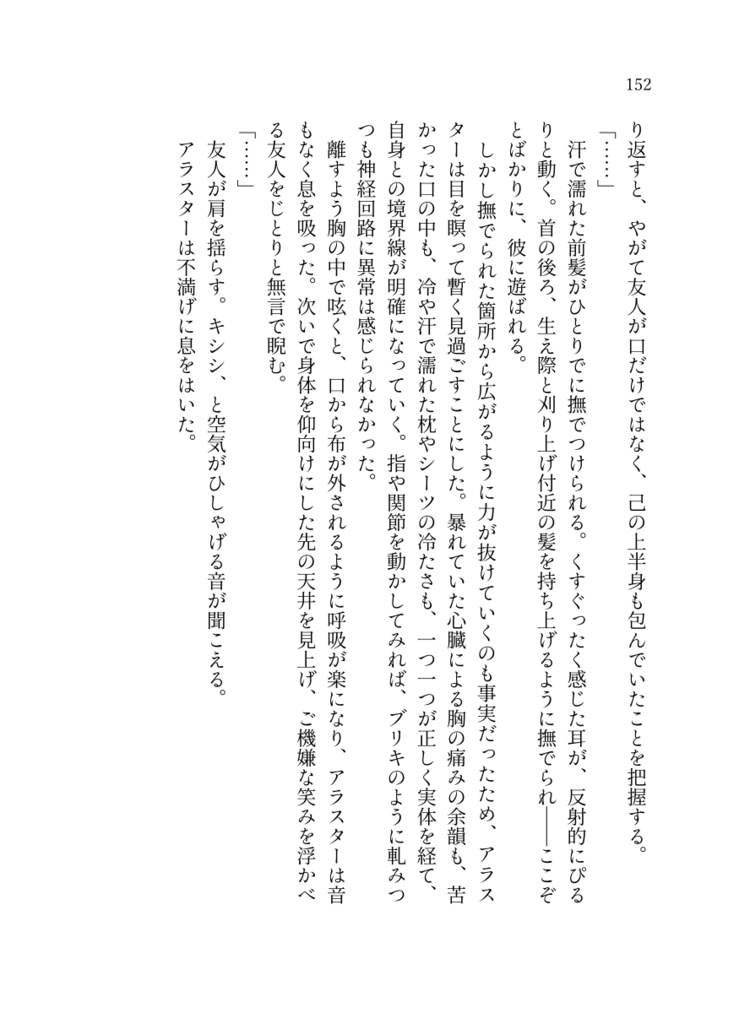 152
り返すと、やがて友人が口だけではなく、己の上半身も包んでいたことを把握する。
「……」
汗で濡れた前髪がひとりでに撫でつけられる。くすぐったく感じた耳が、反射的にぴる
りと動く。首の後ろ、生え際と刈り上げ付近の髪を持ち上げるように撫でられ――ここぞ
とばかりに、彼に遊ばれる。
しかし撫でられた箇所から広がるように力が抜けていくのも事実だったため、アラス
ターは目を瞑って暫く見過ごすことにした。暴れていた心臓による胸の痛みの余韻も、苦
かった口の中も、冷や汗で濡れた枕やシーツの冷たさも、一つ一つが正しく実体を経て、
自身との境界線が明確になっていく。指や関節を動かしてみれば、ブリキのように軋みつ
つも神経回路に異常は感じられなかった。
離すよう胸の中で呟くと、口から布が外されるように呼吸が楽になり、アラスターは音
もなく息を吸った。次いで身体を仰向けにした先の天井を見上げ、ご機嫌な笑みを浮かべ
る友人をじとりと無言で睨む。
「……」
友人が肩を揺らす。キシシ、と空気がひしゃげる音が聞こえる。
アラスターは不満げに息をはいた。